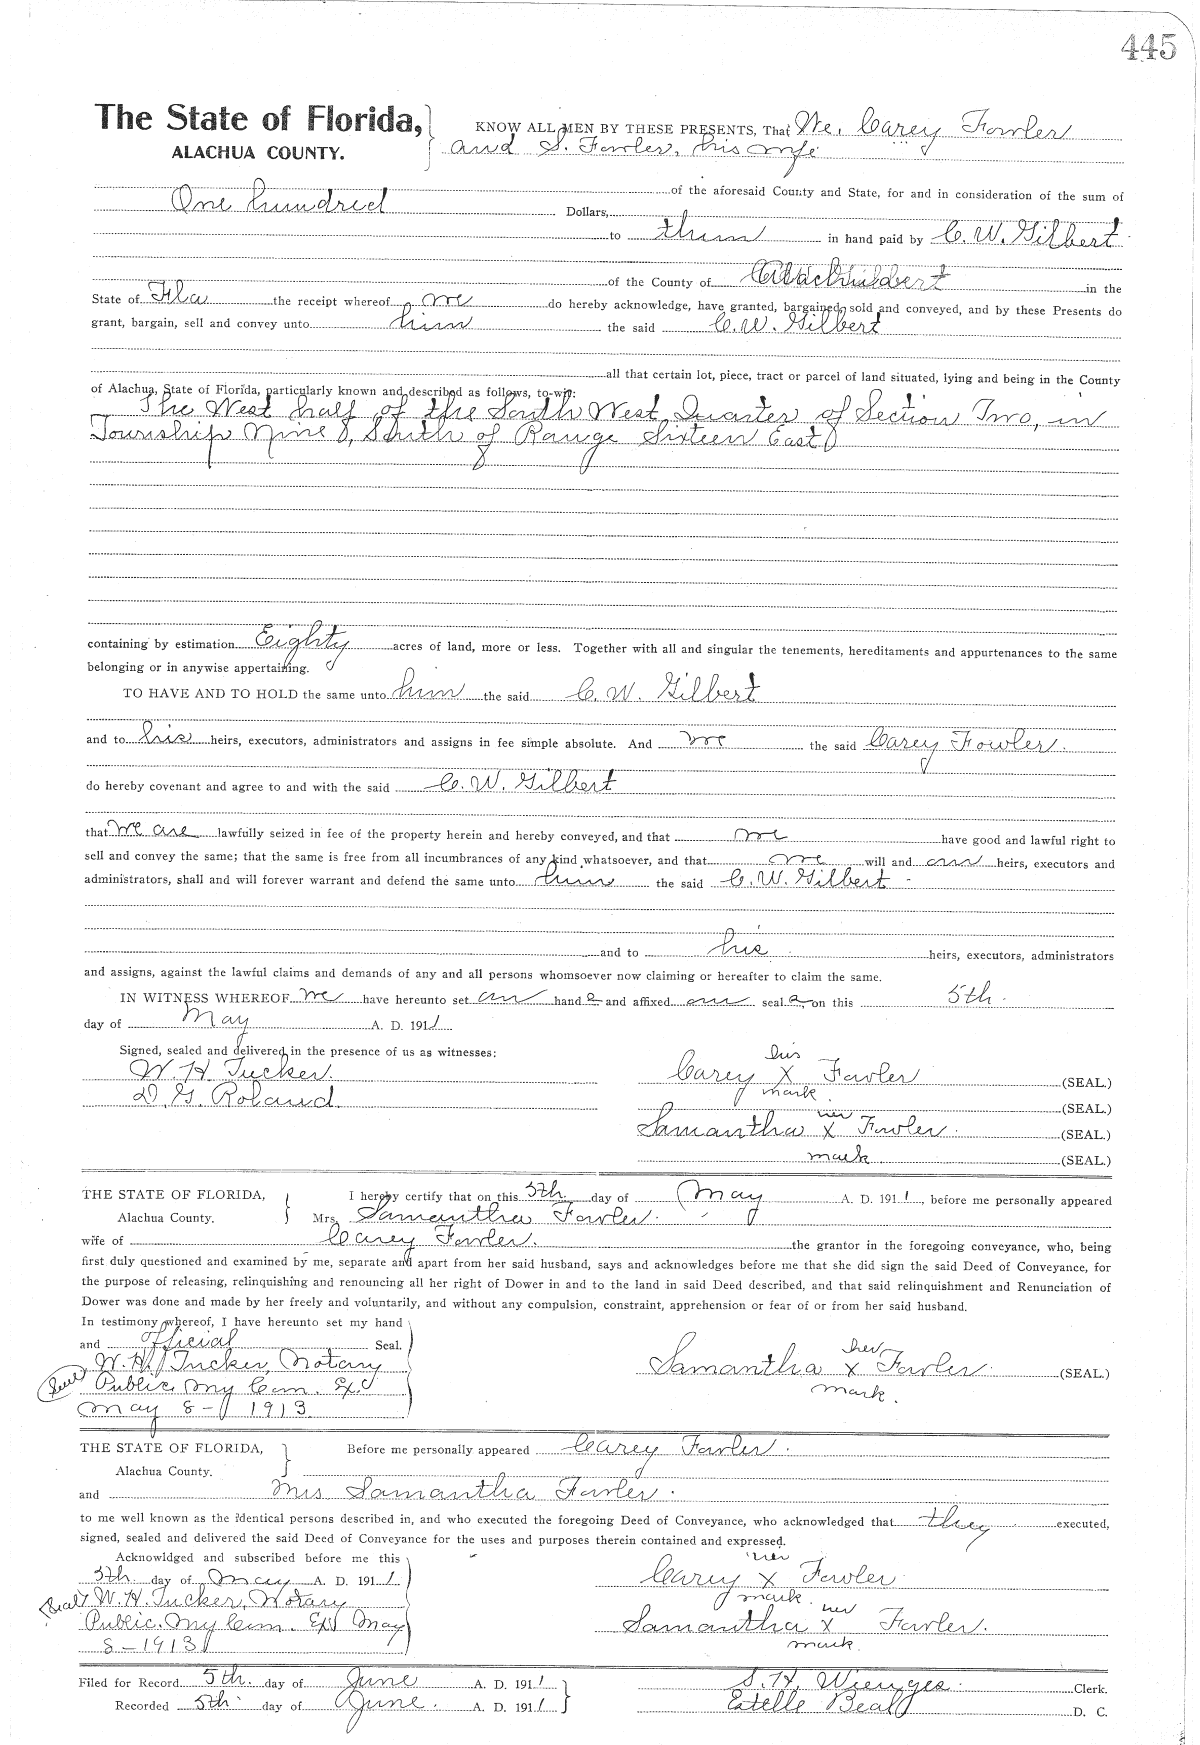 445
The State of Florida, KNOW ALL MEN BY THESE PRESENTS, That We, Carey Fowler
ALACHUA COUNTY. and S. Fowler, his wife
of the aforesaid County and State, for and in consideration of the sum of
One hundred Dollars,
to them in hand paid by C. W. Gilbert
of the County of in the
State of Fla the receipt whereof we do hereby acknowledge, have granted, bargained, sold and conveyed, and by these Presents do
grant, bargain, sell and convey unto him the said C. W. Gilbert
all that certain lot, piece, tract or parcel of land situated, lying and being in the County
of Alachua, State of Florida, particularly known and described as follows, to-wit:
The West half of the South West Quarter of Section Two, in
Township Nine, South of Range Sixteen East
containing by estimation Eighty acres of land, more or less. Together with all and singular the tenements, hereditaments and appurtenances to the same
belonging or in anywise appertaining.
TO HAVE AND TO HOLD the same unto him the said C. W. Gilbert
and to his heirs, executors, administrators and assigns in fee simple absolute. And we the said Carey Fowler.
do hereby covenant and agree to and with the said C. W. Gilbert
that we are lawfully seized in fee of the property herein and hereby conveyed, and that we have good and lawful right to
sell and convey the same; that the same is free from all incumbrances of any kind whatsoever, and that we will and our heirs, executors and
administrators, shall and will forever warrant and defend the same unto him the said C. W. Gilbert
and to his heirs, executors, administrators
and assigns, against the lawful claims and demands of any and all persons whomsoever now claiming or hereafter to claim the same.
IN WITNESS WHEREOF we have hereunto set our hand s and affixed our seal s on this 5th
day of May A. D. 1911
Signed, sealed and delivered in the presence of us as witnesses:
W. H. Tucker.
D. G. Roland
his
Carey X Fowler (SEAL.)
mark. (SEAL.)
her
Samantha X Fowler. (SEAL.)
mark (SEAL.)
THE STATE OF FLORIDA, I hereby certify that on this 5th day of May A. D. 1911, before me personally appeared
Alachua County. Mrs. Samantha Fowler.
wife of Carey Fowler. the grantor in the foregoing conveyance, who, being
first duly questioned and examined by me, separate and apart from her said husband, says and acknowledges before me that she did sign the said Deed of Conveyance, for
the purpose of releasing, relinquishing and renouncing all her right of Dower in and to the land in said Deed described, and that said relinquishment and Renunciation of
Dower was done and made by her freely and voluntarily, and without any compulsion, constraint, apprehension or fear of or from her said husband.
In testimony whereof, I have hereunto set my hand
and official Seal.
W. H. Tucker, Notary
Seal Public. My Com. Ex.
May 8-1913
her
Samantha X Fowler. (SEAL.)
mark.
THE STATE OF FLORIDA, Before me personally appeared Carey Fowler.
Alachua County.
and Mrs Samantha Fowler.
to me well known as the identical persons described in, and who executed the foregoing Deed of Conveyance, who acknowledged that they executed,
signed, sealed and delivered the said Deed of Conveyance for the uses and purposes therein contained and expressed.
Acknowldged and subscribed before me this
5th day of May A. D. 1911
Seal W. H. Tucker, Notary
Public. My Com. Ex May
8-1913
Carey X Fowler
mark. her
Samantha X Fowler.
mark.
Filed for Record 5th. day of June A. D. 1911 S. H. Wienges. Clerk.
Recorded 5th. day of June. A. D. 1911 Estelle Beal D. C.